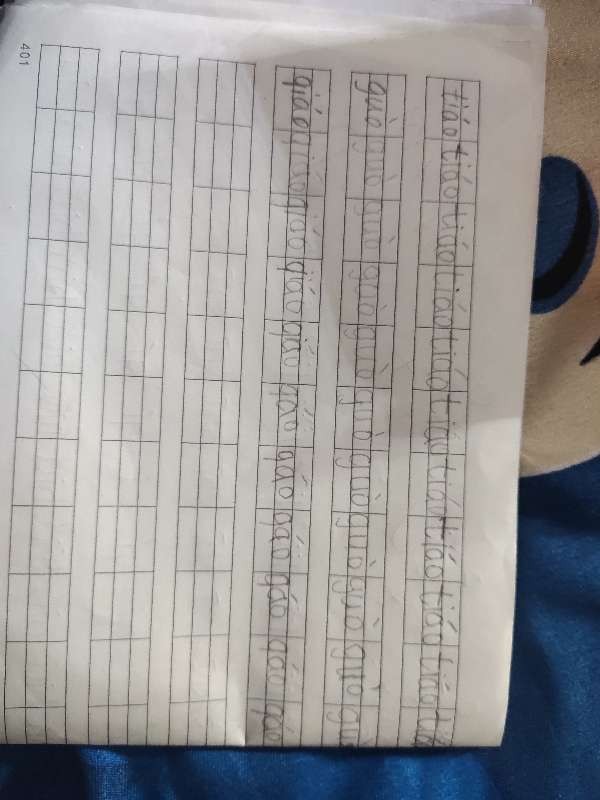 tiáo tiáo tiáo tiáo tiáo tiáo tiáo tiáo tiáo tiáo
guò guò guò guò guò guò guò guò guò guò
qiáo qiáo qiáo qiáo qiáo qiáo qiáo qiáo qiáo qiáo qiáo
401